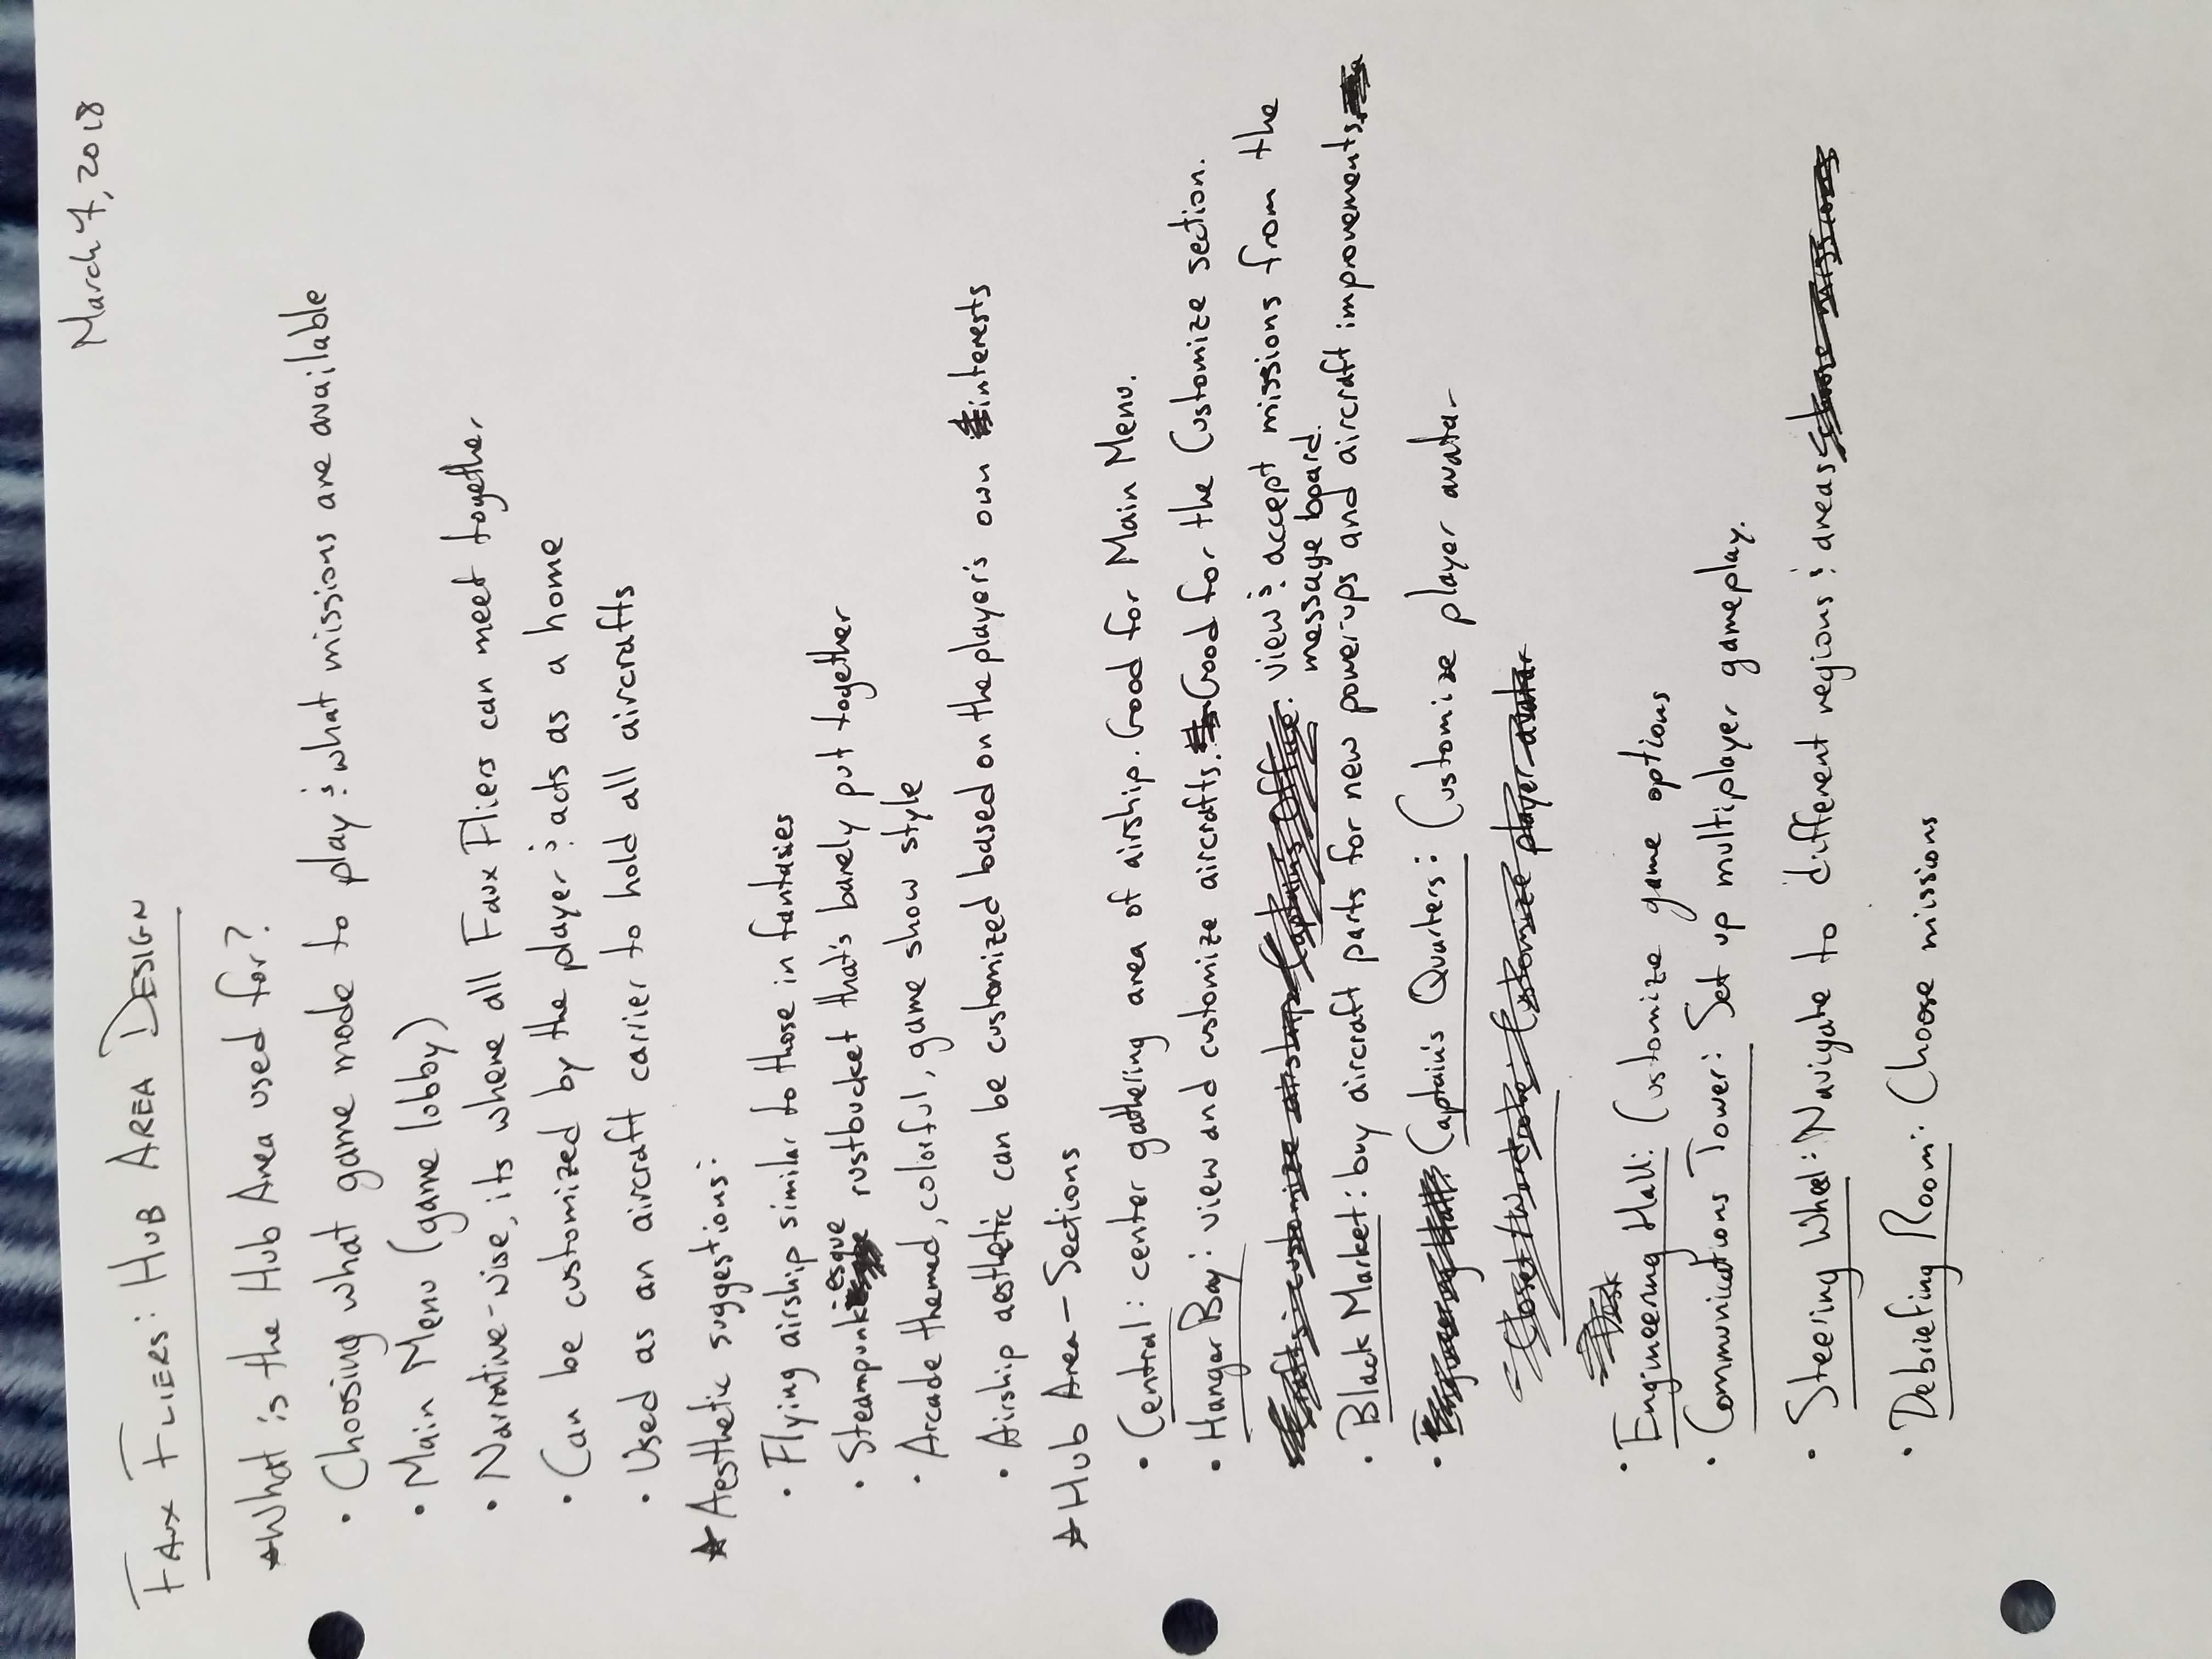 March 7, 2018
FAUX FLIERS: HUB AREA DESIGN
★What is the Hub Area used for?
• Choosing what game mode to play & what missions are available
• Main Menu (game lobby)
• Narrative-wise, its where all Faux Fliers can meet together
• Can be customized by the player & acts as a home
• Used as an aircraft carrier to hold all aircrafts
★ Aesthetic suggestions:
• Flying airship similar to those in fantasies
• Steampunk-esque rustbucket that's barely put together
• Arcade themed, colorful, game show style
• Airship aesthetic can be customized based on the player's own interests
★ Hub Area - Sections
• Central: center gathering area of airship. Good for Main Menu.
• Hanger Bay: view and customize aircrafts. Good for the Customize section.
Crafts: customize airship Captain's Office: view & accept missions from the
message board.
• Black Market: buy aircraft parts for new power-ups and aircraft improvements
• Engineering Hall: Captain's Quarters: Customize player avatar
- Closet/Wardrobe: Customize player avatar
Desk
• Engineering Hall: Customize game options
• Communications Tower: Set up multiplayer gameplay.
• Steering Wheel: Navigate to different regions & areas choose missions
• Debriefing Room: Choose missions